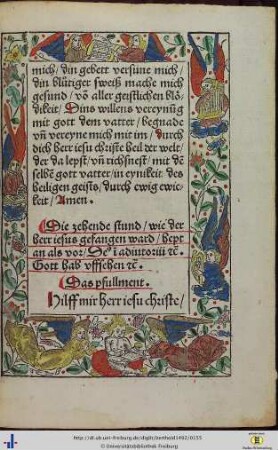 mich/ din gebett versüne mich/
din blůtiger sweiß mache mich
gesund/ vō aller geistlichen blö⸗
dikeit/ Dins willens vereynūg
mit gott dem vatter/ begnade
vñ vereyne mich mit im/ durch
dich herr iesu christe heil der welt/
der da lepst/ vñ richsnest/ mit dē
selbē gott vatter/ in eynikeit des
heiligen geists/ durch ewig ewic⸗
keit/ Amen.
Die zehende stund/ wie der
herr iesus gefangen ward/ hept
an als vor/ De⁹ i adiutoriū ꝛc.
Gott hab vffsehen ꝛc.
Das psullment.
Hilff mir herr iesu christe/
http://dl.ub.uni-freiburg.de/diglit/bertholdi1492/0155
© Universitätsbibliothek Freiburg